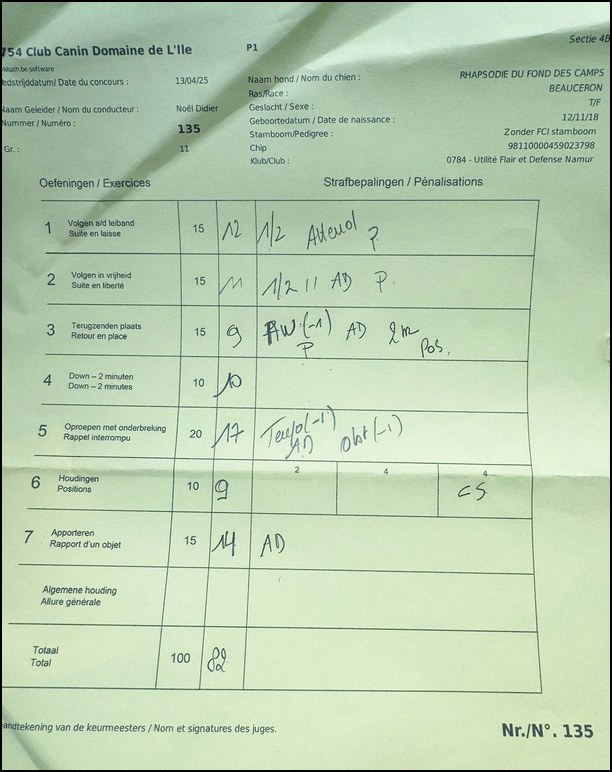 754 Club Canin Domaine de L'Ile P1 Sectie 4B
edstrijddatum/ Date du concours : 13/04/25
Naam hond / Nom du chien : RHAPSODIE DU FOND DES CAMPS
Ras/Race : BEAUCERON
Naam Geleider / Nom du conducteur : Noël Didier
Geslacht / Sexe : T/F
Nummer / Numéro : 135
Geboortedatum / Date de naissance : 12/11/18
Stamboom/Pedigree : Zonder FCI stamboom
Gr. : 11
Chip 98110000459023798
Klub/Club : 0784 - Utilité Flair et Defense Namur
Oefeningen / Exercices Strafbepalingen / Pénalisations
1 Volgen a/d leiband
Suite en laisse 15 12 1/2 Attend P.
2 Volgen in vrijheid
Suite en liberté 15 11 1/2 11 AD P.
3 Terugzenden plaats
Retour en place 15 9 AW(-1) AD 2m
P Pos.
4 Down – 2 minuten
Down – 2 minutes 10 10
5 Oproepen met onderbreking
Rappel interrompu 20 17 (-1) Obt(-1)
AD
6 Houdingen
Positions 10 9 2 4 4
CS
7 Apporteren
Rapport d'un objet 15 14 AD
Algemene houding
Allure générale
Totaal
Total 100 82
andtekening van de keurmeesters / Nom et signatures des juges. Nr./N°. 135